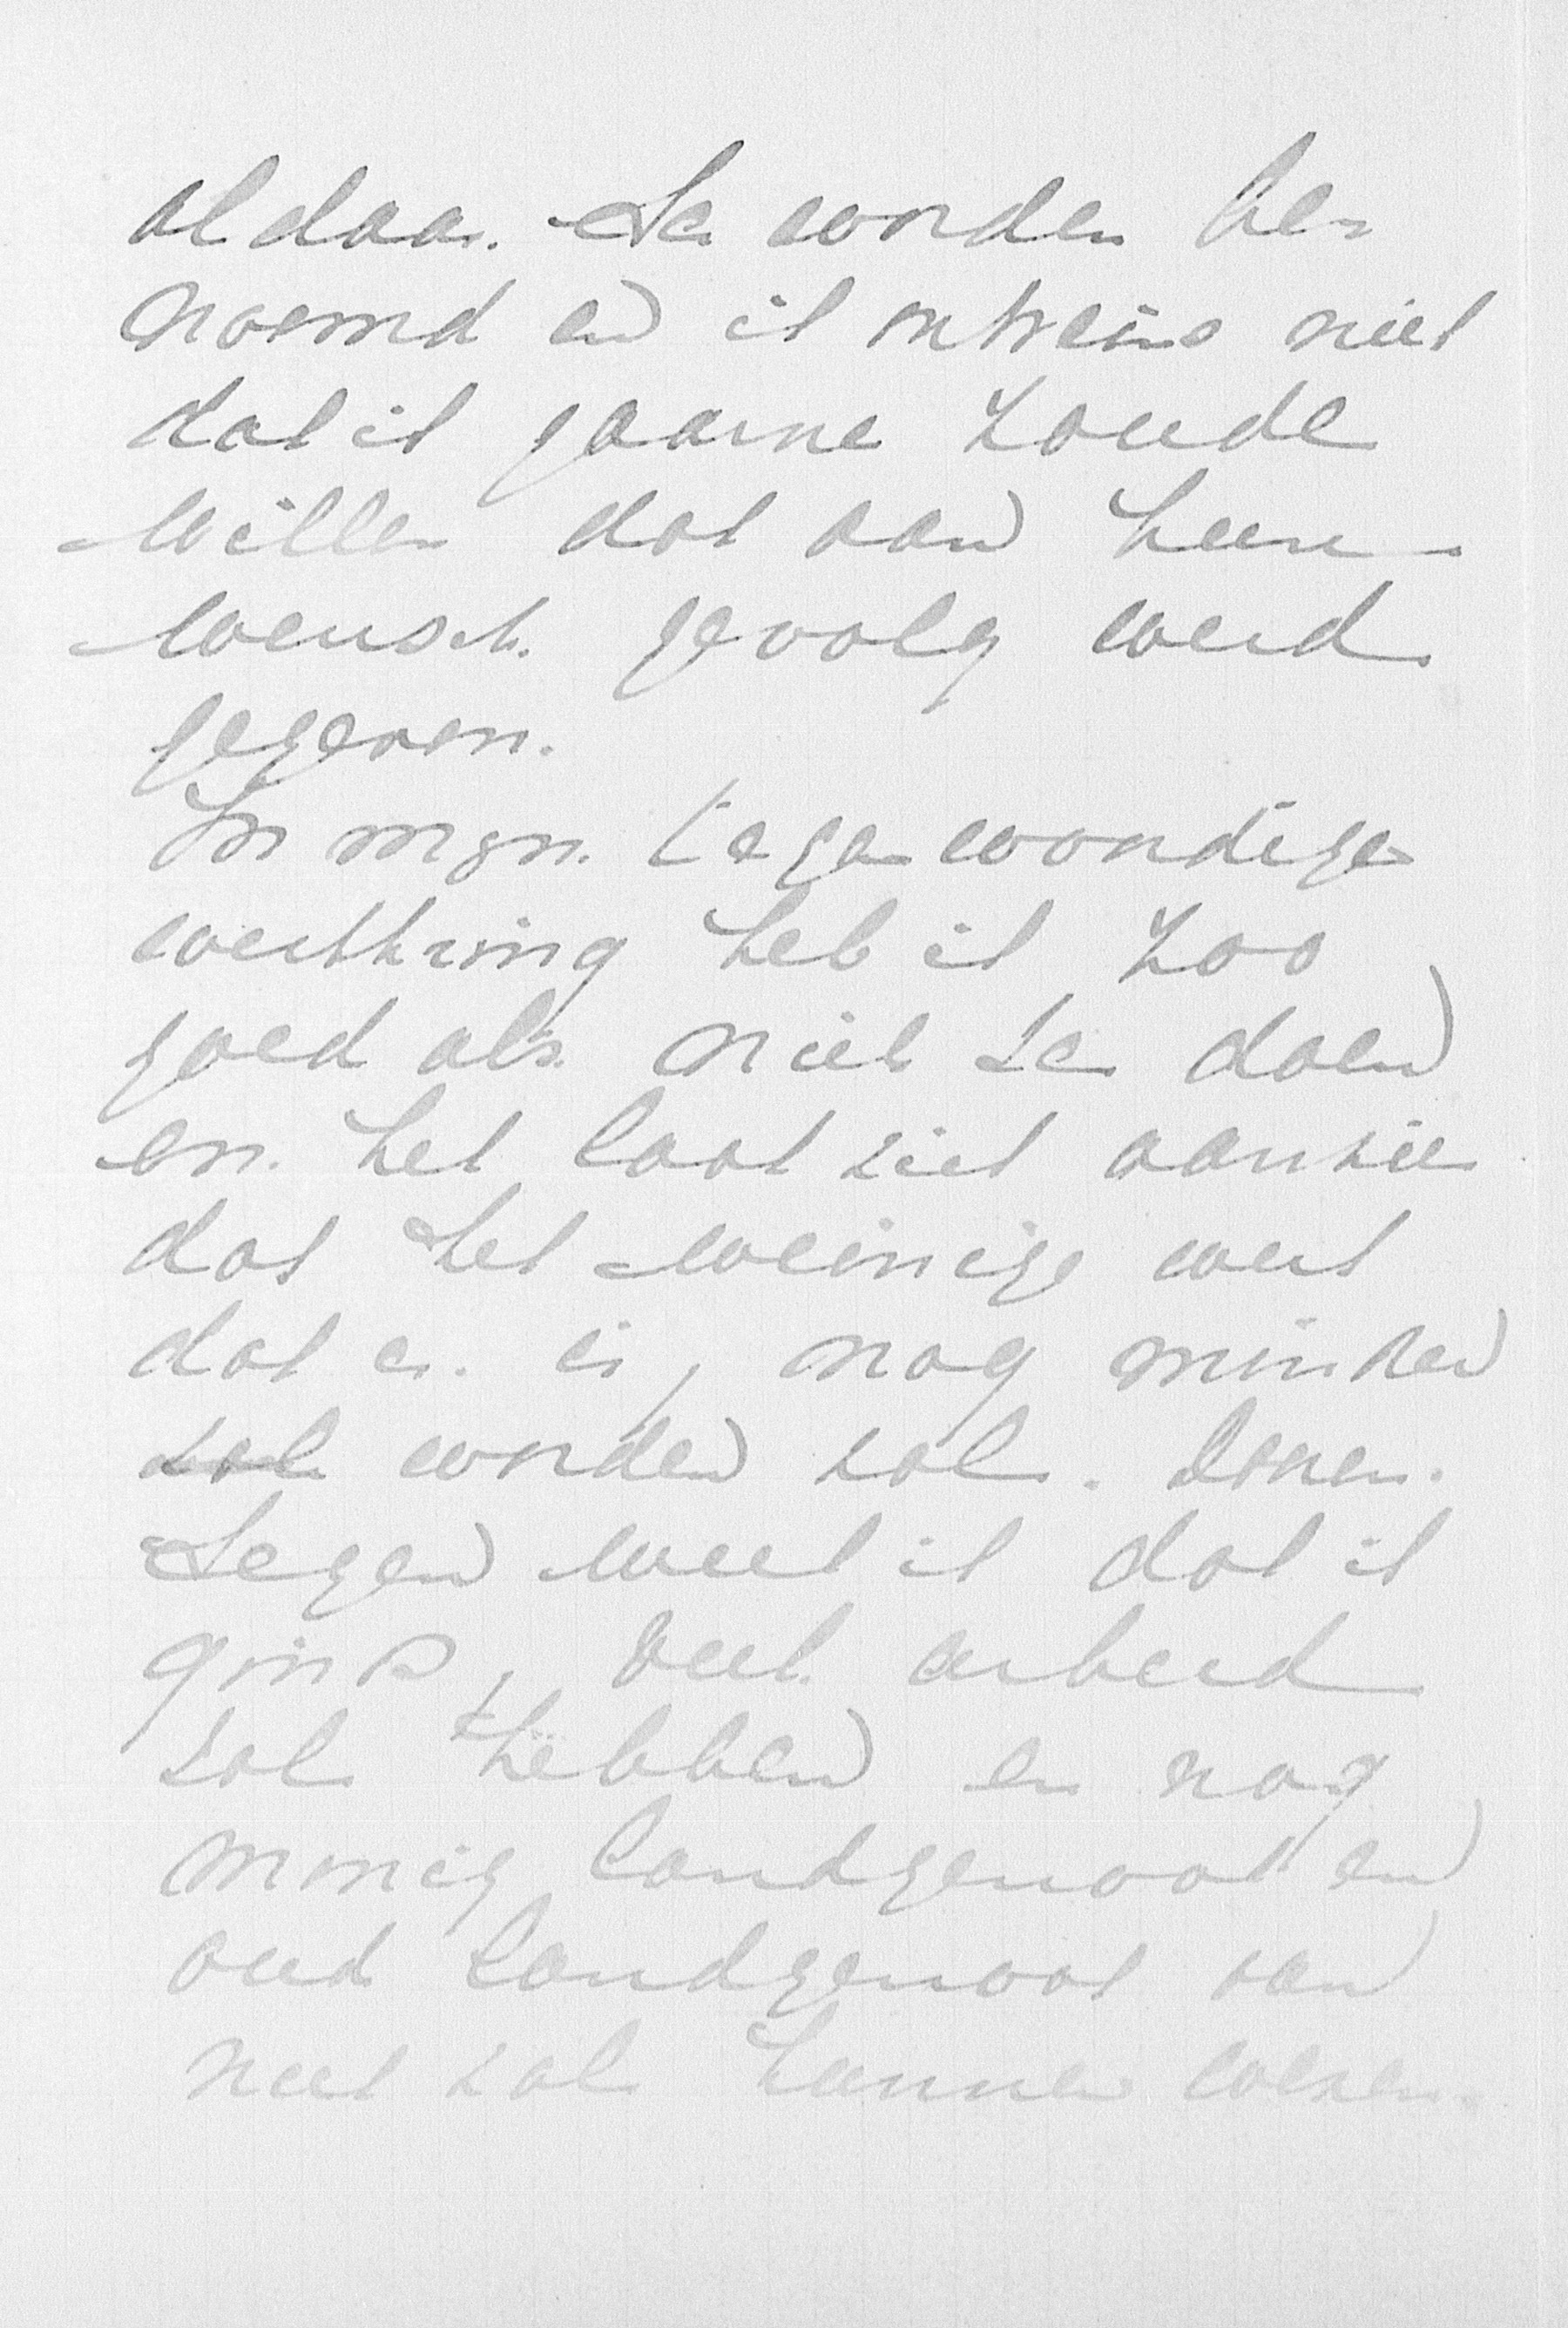 aldaar te worden be-
noemd en ik ontveins niet
dat ik gaarne zoude
willen dat aan hun
wensch gevolg werd
gegeven.
In mijn tegenwoordige
werkkring heb ik zoo
goed als niets te doen
en het laat zich aanzien
dat het weinige werk
dat er is, nog minder
zal worden zal. Daaren-
tegen weet ik dat ik
ginds, veel arbeid
zal hebben en nog
menig landgenoot en
oud landgenoot van
nut zal kunnen wezen.